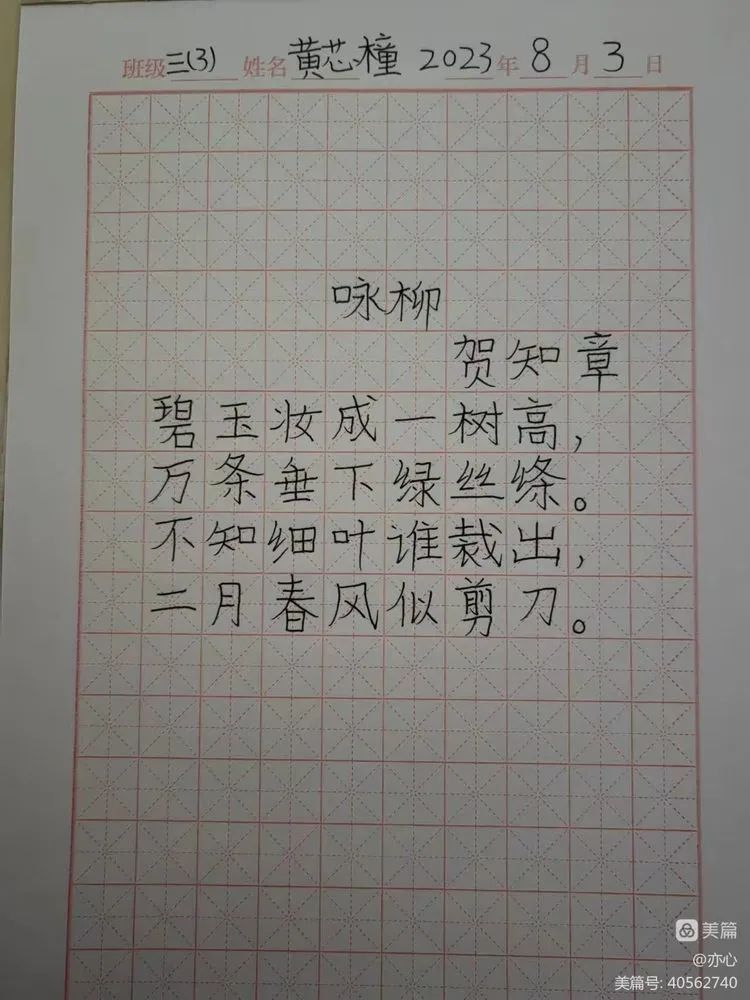 班级三(3) 姓名黄芯橦 2023年8月3日
咏柳
贺知章
碧玉妆成一树高，
万条垂下绿丝绦。
不知细叶谁裁出，
二月春风似剪刀。
美篇
@亦心
美篇号: 40562740